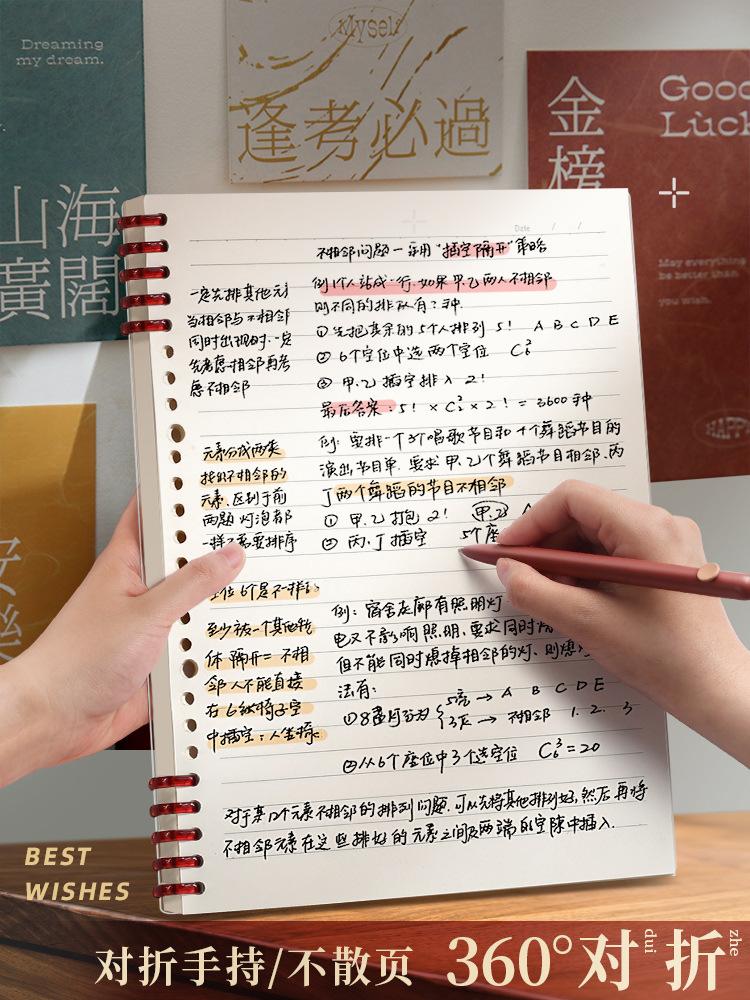 Dreaming
my dream.
山海
廣闊
Myself
逢考必過
金榜
Good
Luck
May everything
be better than
you wish.
HAPPY
安
樂
Date / /
不相邻问题一采用"插空隔开"策略
例1人站成一行.如果甲.乙两人不相邻
则不同的排队有:?种.
①先把其余的5个人排列 5! A B C D E
②6个空位中选两个空位 C₆²
③甲.乙插空排入 2!
最后答案:5! × C₆² × 2! = 3600种
一定先排其他元素
当相邻与不相邻
同时出现时.一定
先考虑相邻再考
虑不相邻
例:要排一个3个唱歌节目和4个舞蹈节目的
演出节目单.要求甲.乙个舞蹈节目相邻.丙
丁两个舞蹈的节目不相邻
①甲.乙打包 2! 甲.乙 A
②丙.丁插空 5个座
元素分成两类
找出不相邻的
元素.区别于前
两题 灯泡都
一样不需要排序
位6个是不排
至少被一个其他物
体 隔开=不相
邻 人不能直接
在6级椅子空
中插空:人坐椅
例:宿舍走廊有照明灯
电又不影响照明.要求同时熄
但不能同时熄掉相邻的灯.则熄
法有:
①8盏可分为 5亮 → A B C D E
3灭 → 不相邻 1. 2. 3
②从6个座位中3个选空位 C₆³=20
对于某几个元素不相邻的排列问题.可以先将其他排列好.然后再将
不相邻元素在这些排好的元素之间及两端的空隙中插入.
BEST
WISHES
对折手持/不散页 360°对dui折zhe